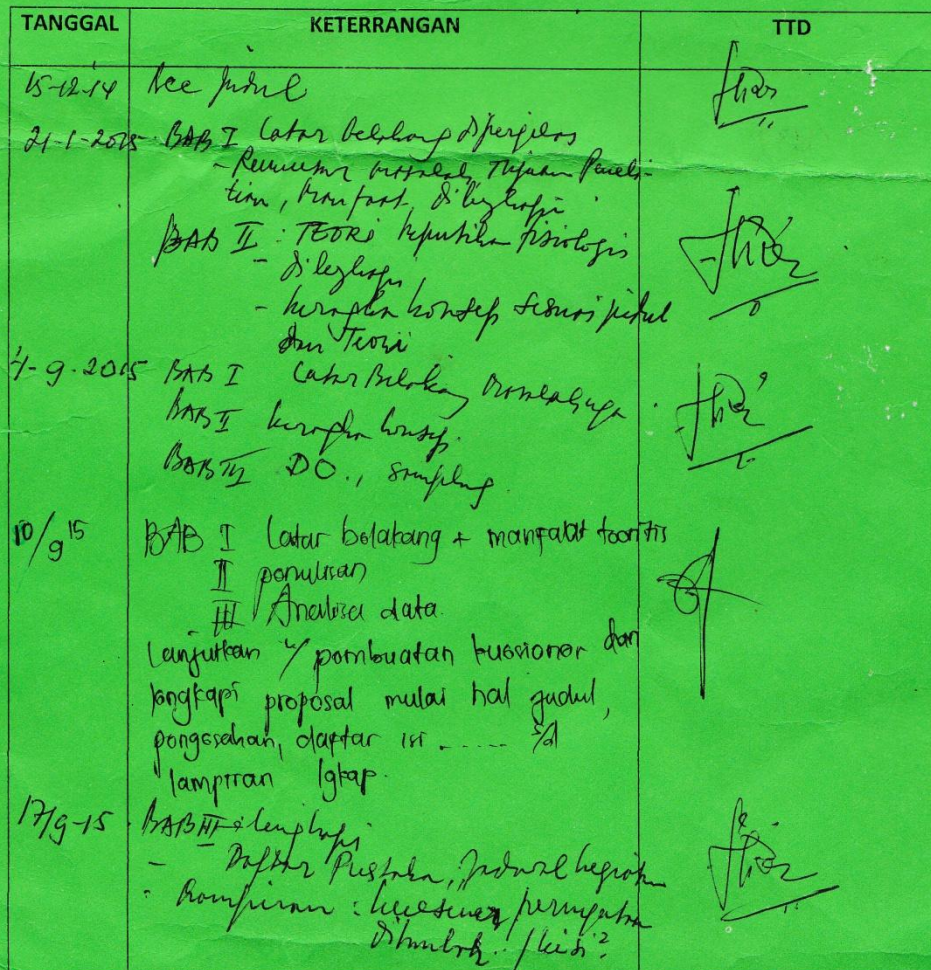 TANGGAL KETERRANGAN TTD
15-12-14 Acc Judul
21-1-2015 BAB I Latar belakang diperjelas
- Rumusan masalah, Tujuan Peneli-
tian, manfaat, dilengkapi
BAB II : TEORI kepuasan fisiologis
- dilengkapi
- kerangka konsep sesuai judul
dan Teori
4-9-2015 BAB I Latar Belakang masalahnya
BAB II kerangka konsep.
BAB III DO., sampling.
10/9 15 BAB I Latar belakang + manfaat teoritis
II penulisan
III Analisa data
Lanjutkan u/ pembuatan kuesioner dan
lengkapi proposal mulai hal judul,
pengesahan, daftar isi ..... s/d
lampiran lgkap.
17/9-15 BAB III lengkapi
- Daftar Pustaka, Jadwal kegiatan
- Lampiran : kuesioner pernyataan